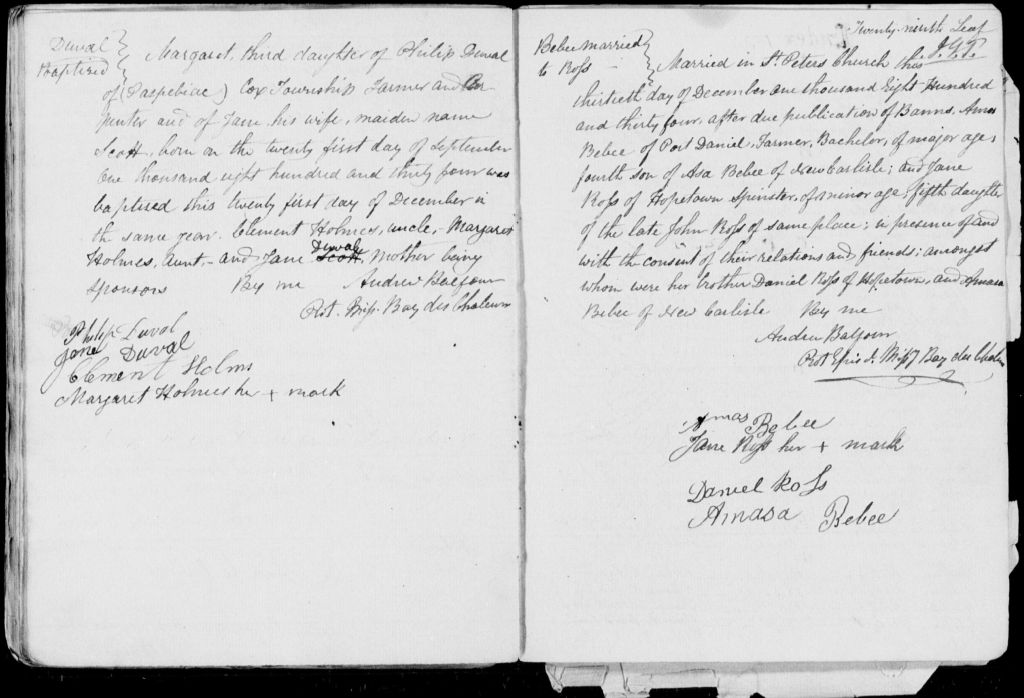 Duval
Baptised
Margaret, third daughter of Philip Duval
of (Paspebiac) Cox Township Farmer and Car
penter and of Jane his wife, maiden name
Scott, born on the twenty first day of September
One thousand eight hundred and thirty four was
baptised this twenty first day of December in
the same year. Clement Holmes, uncle, Margaret
Holmes, aunt, - and Jane Scott Duval, Mother being
sponsors By me Andrew Balfour
Prot. Miss. Bay des Chaleurs
Philip Duval
Jane Duval
Clement Holms
Margaret Holmes her + mark
Twenty-ninth Leaf
Bebee married
to Ross
Married in St. Peters Church this
thirtieth day of December One thousand Eight Hundred
and thirty four, after due publication of Banns, Amas
Bebee of Port Daniel, Farmer, Bachelor, of major age,
fourth son of Asa Bebee of New Carlisle; and Jane
Ross of Hopetown Spinster, of minor age, fifth daughter
of the late John Ross of same place; in presence of and
with the consent of their relations and friends; amongst
whom were her brother Daniel Ross of Hopetown, and Amasa
Bebee of New Carlisle By me
Andrew Balfour
Prot Epis l. Missy Bay des Chaleurs
Amas Bebee
Jane Ross her + mark
Daniel Ross
Amasa Bebee